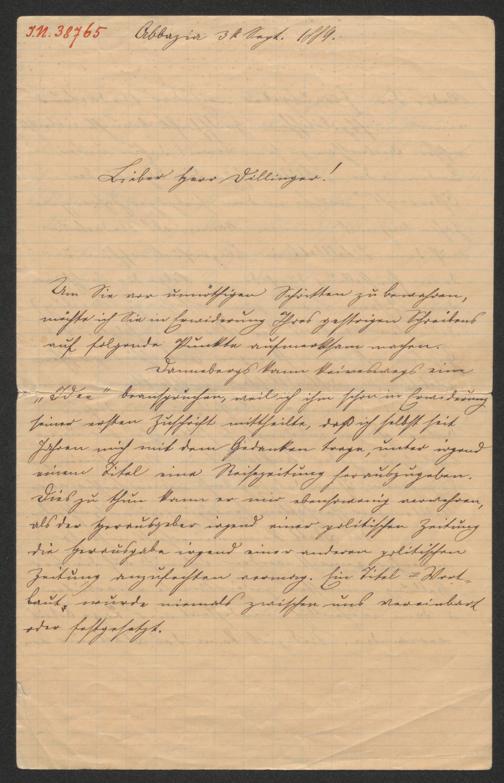 J.N. 38765
Abbazia 3t Sept. 1889.
Lieber Herr Dillinger!
Um Sie vor unnöthigen Schritten zu bewahren,
möchte ich Sie in Erwiderung Ihres gestrigen Schreibens
auf folgende Punkte aufmerksam machen.
Dannebergs kann keineswegs eine
„Idee" beanspruchen, weil ich ihm schon in Erwiderung
seiner ersten Zuschrift mittheilte, daß ich selbst seit
Jahren mich mit dem Gedanken trage, unter irgend
einem Titel eine Reisezeitung herauszugeben.
Dies zu thun kann er mir ebensowenig verwehren,
als der Herausgeber irgend einer politischen Zeitung
die Herausgabe irgend einer anderen politischen
Zeitung anzufechten vermag. Ein Titel = Wort-
laut, wurde niemals zwischen uns vereinbart
oder festgesetzt.